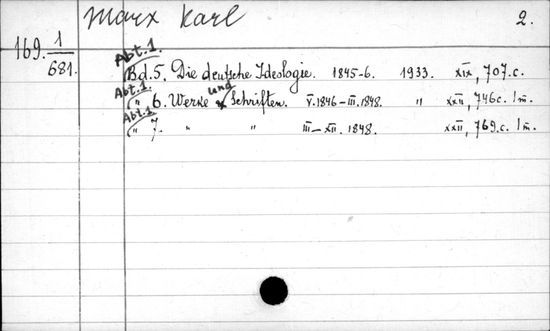 Marx Karl 2.
169. 1/681.
Abt. 1.
Bd. 5. Die deutsche Ideologie. 1845-6. 1933. XIX, 707. c.
Abt. 1.
" 6. Werke und Schriften. V. 1846 – III. 1848. " XXII, 746 c. 1 m.
Abt. 1.
" 7. " " III – XII. 1848. XXII, 769. c. 1 m.